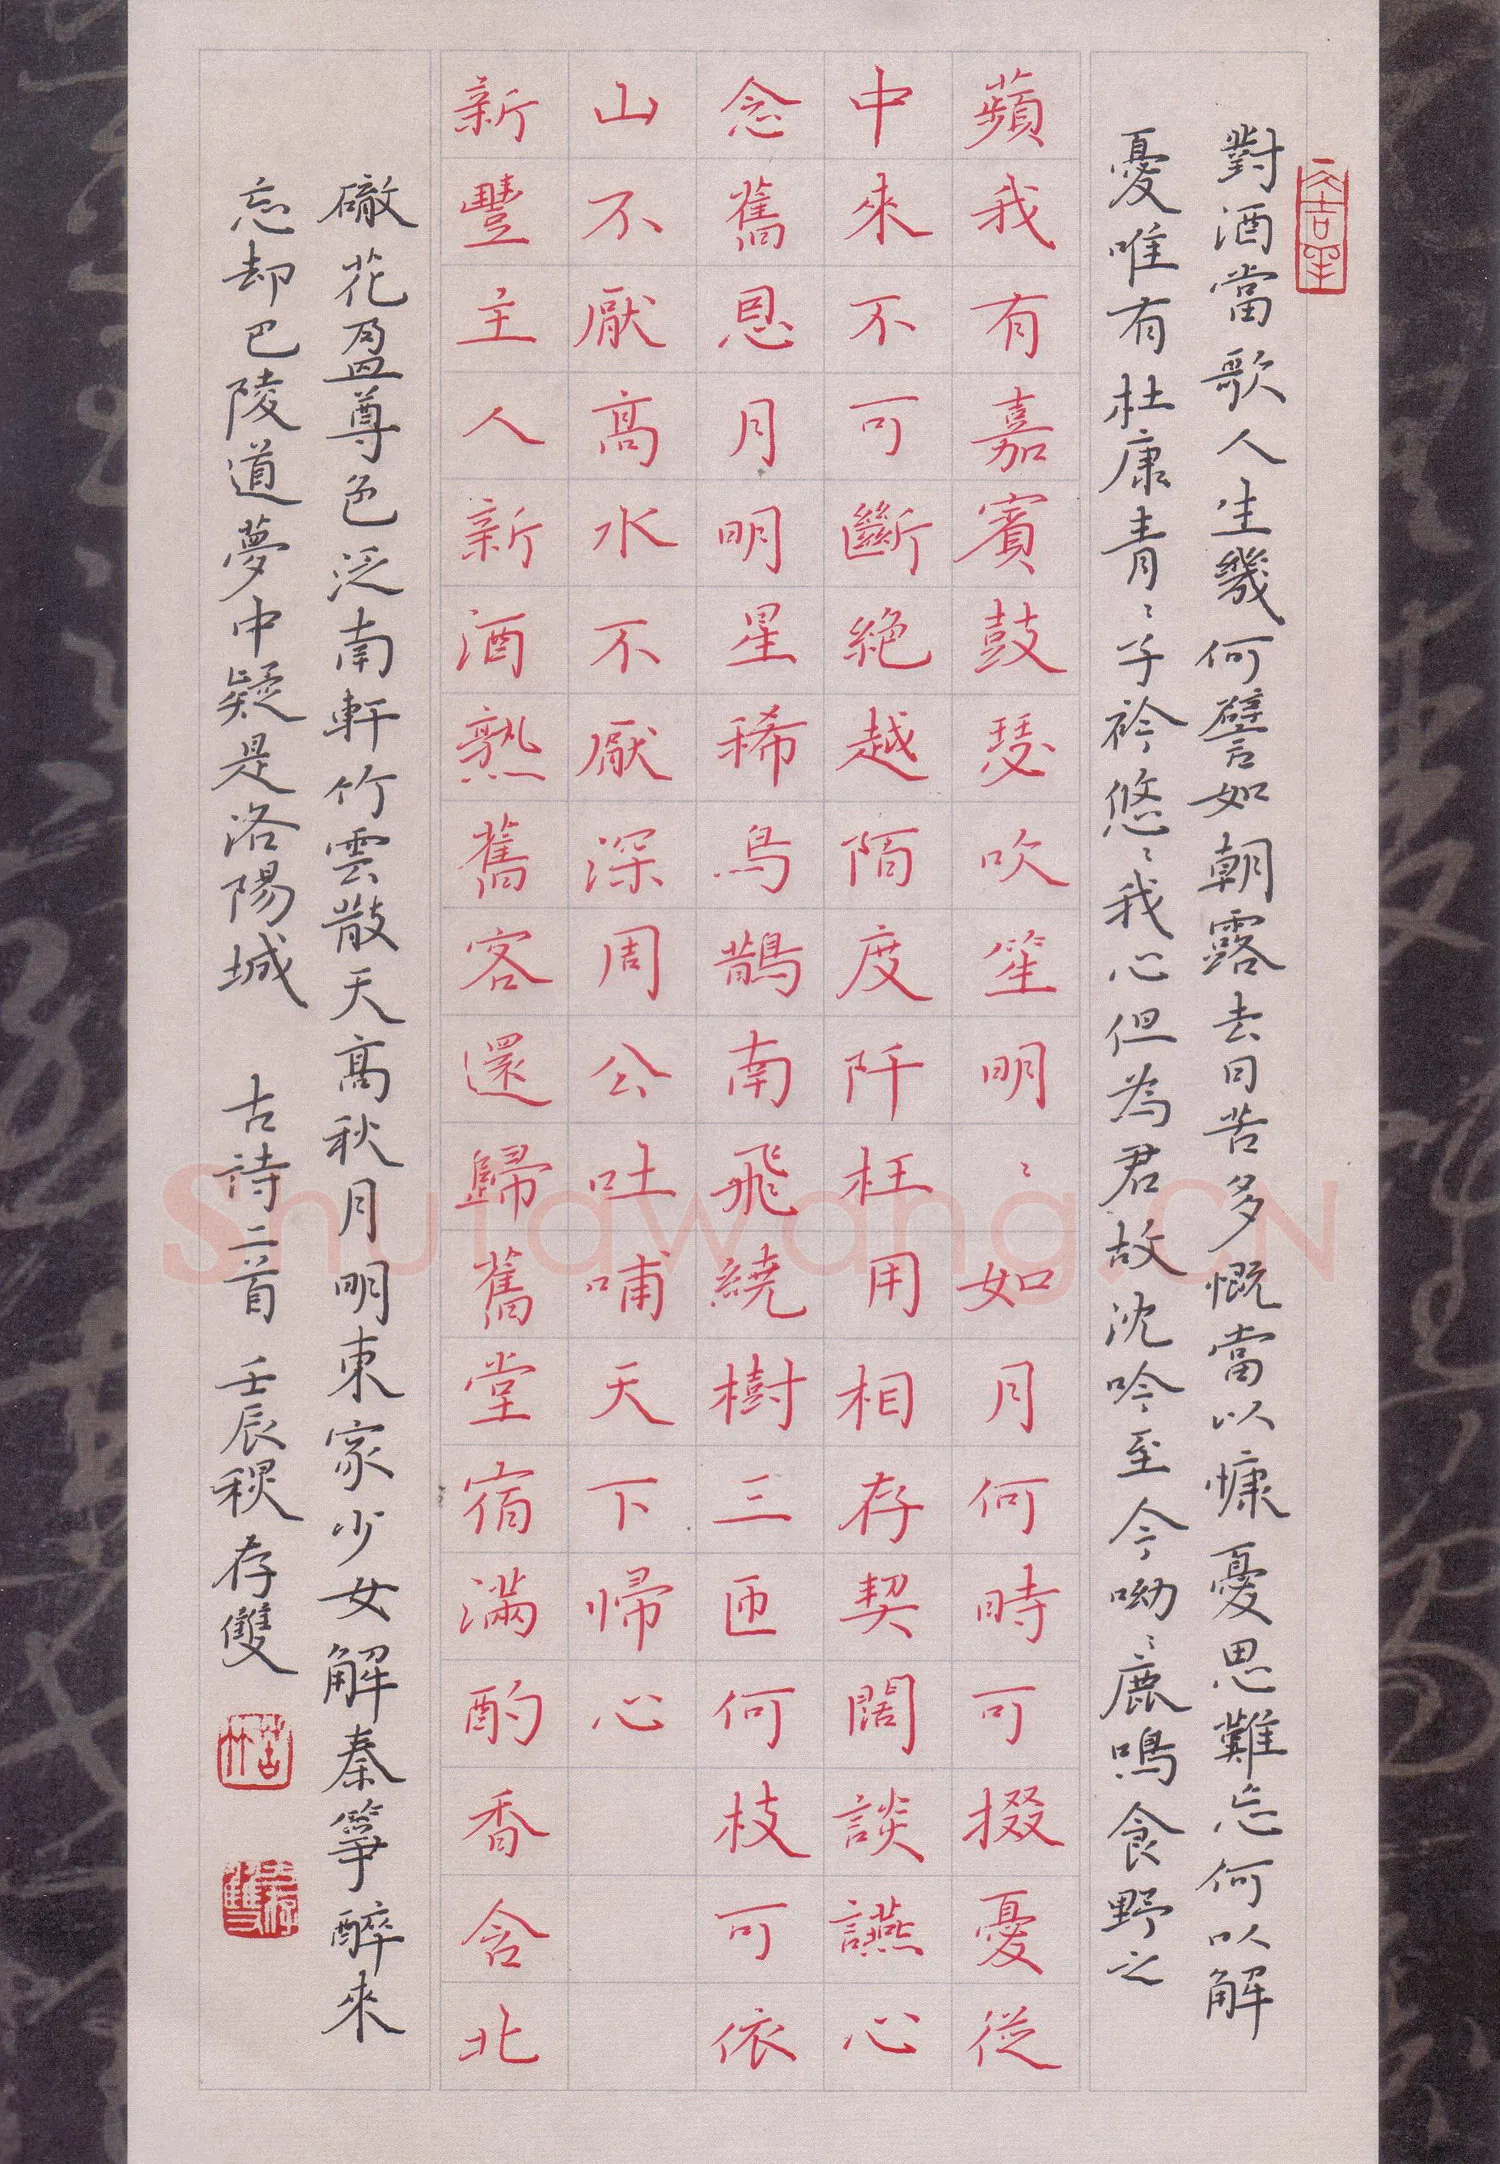 對酒當歌人生幾何譬如朝露去日苦多慨當以慷憂思難忘何以解
憂唯有杜康青〻子衿悠〻我心但為君故沈吟至今呦〻鹿鳴食野之
蘋我有嘉賓鼓瑟吹笙明〻如月何時可掇憂從
中來不可斷絕越陌度阡枉用相存契闊談讌心
念舊恩月明星稀烏鵲南飛繞樹三匝何枝可依
山不厭高水不厭深周公吐哺天下歸心
新豐主人新酒熟舊客還歸舊堂宿滿酌香含北
礮花盈尊色泛南軒竹雲散天高秋月明東家少女解秦箏醉來
忘却巴陵道夢中疑是洛陽城 古詩二首 壬辰秋存雙
Shufawang.CN